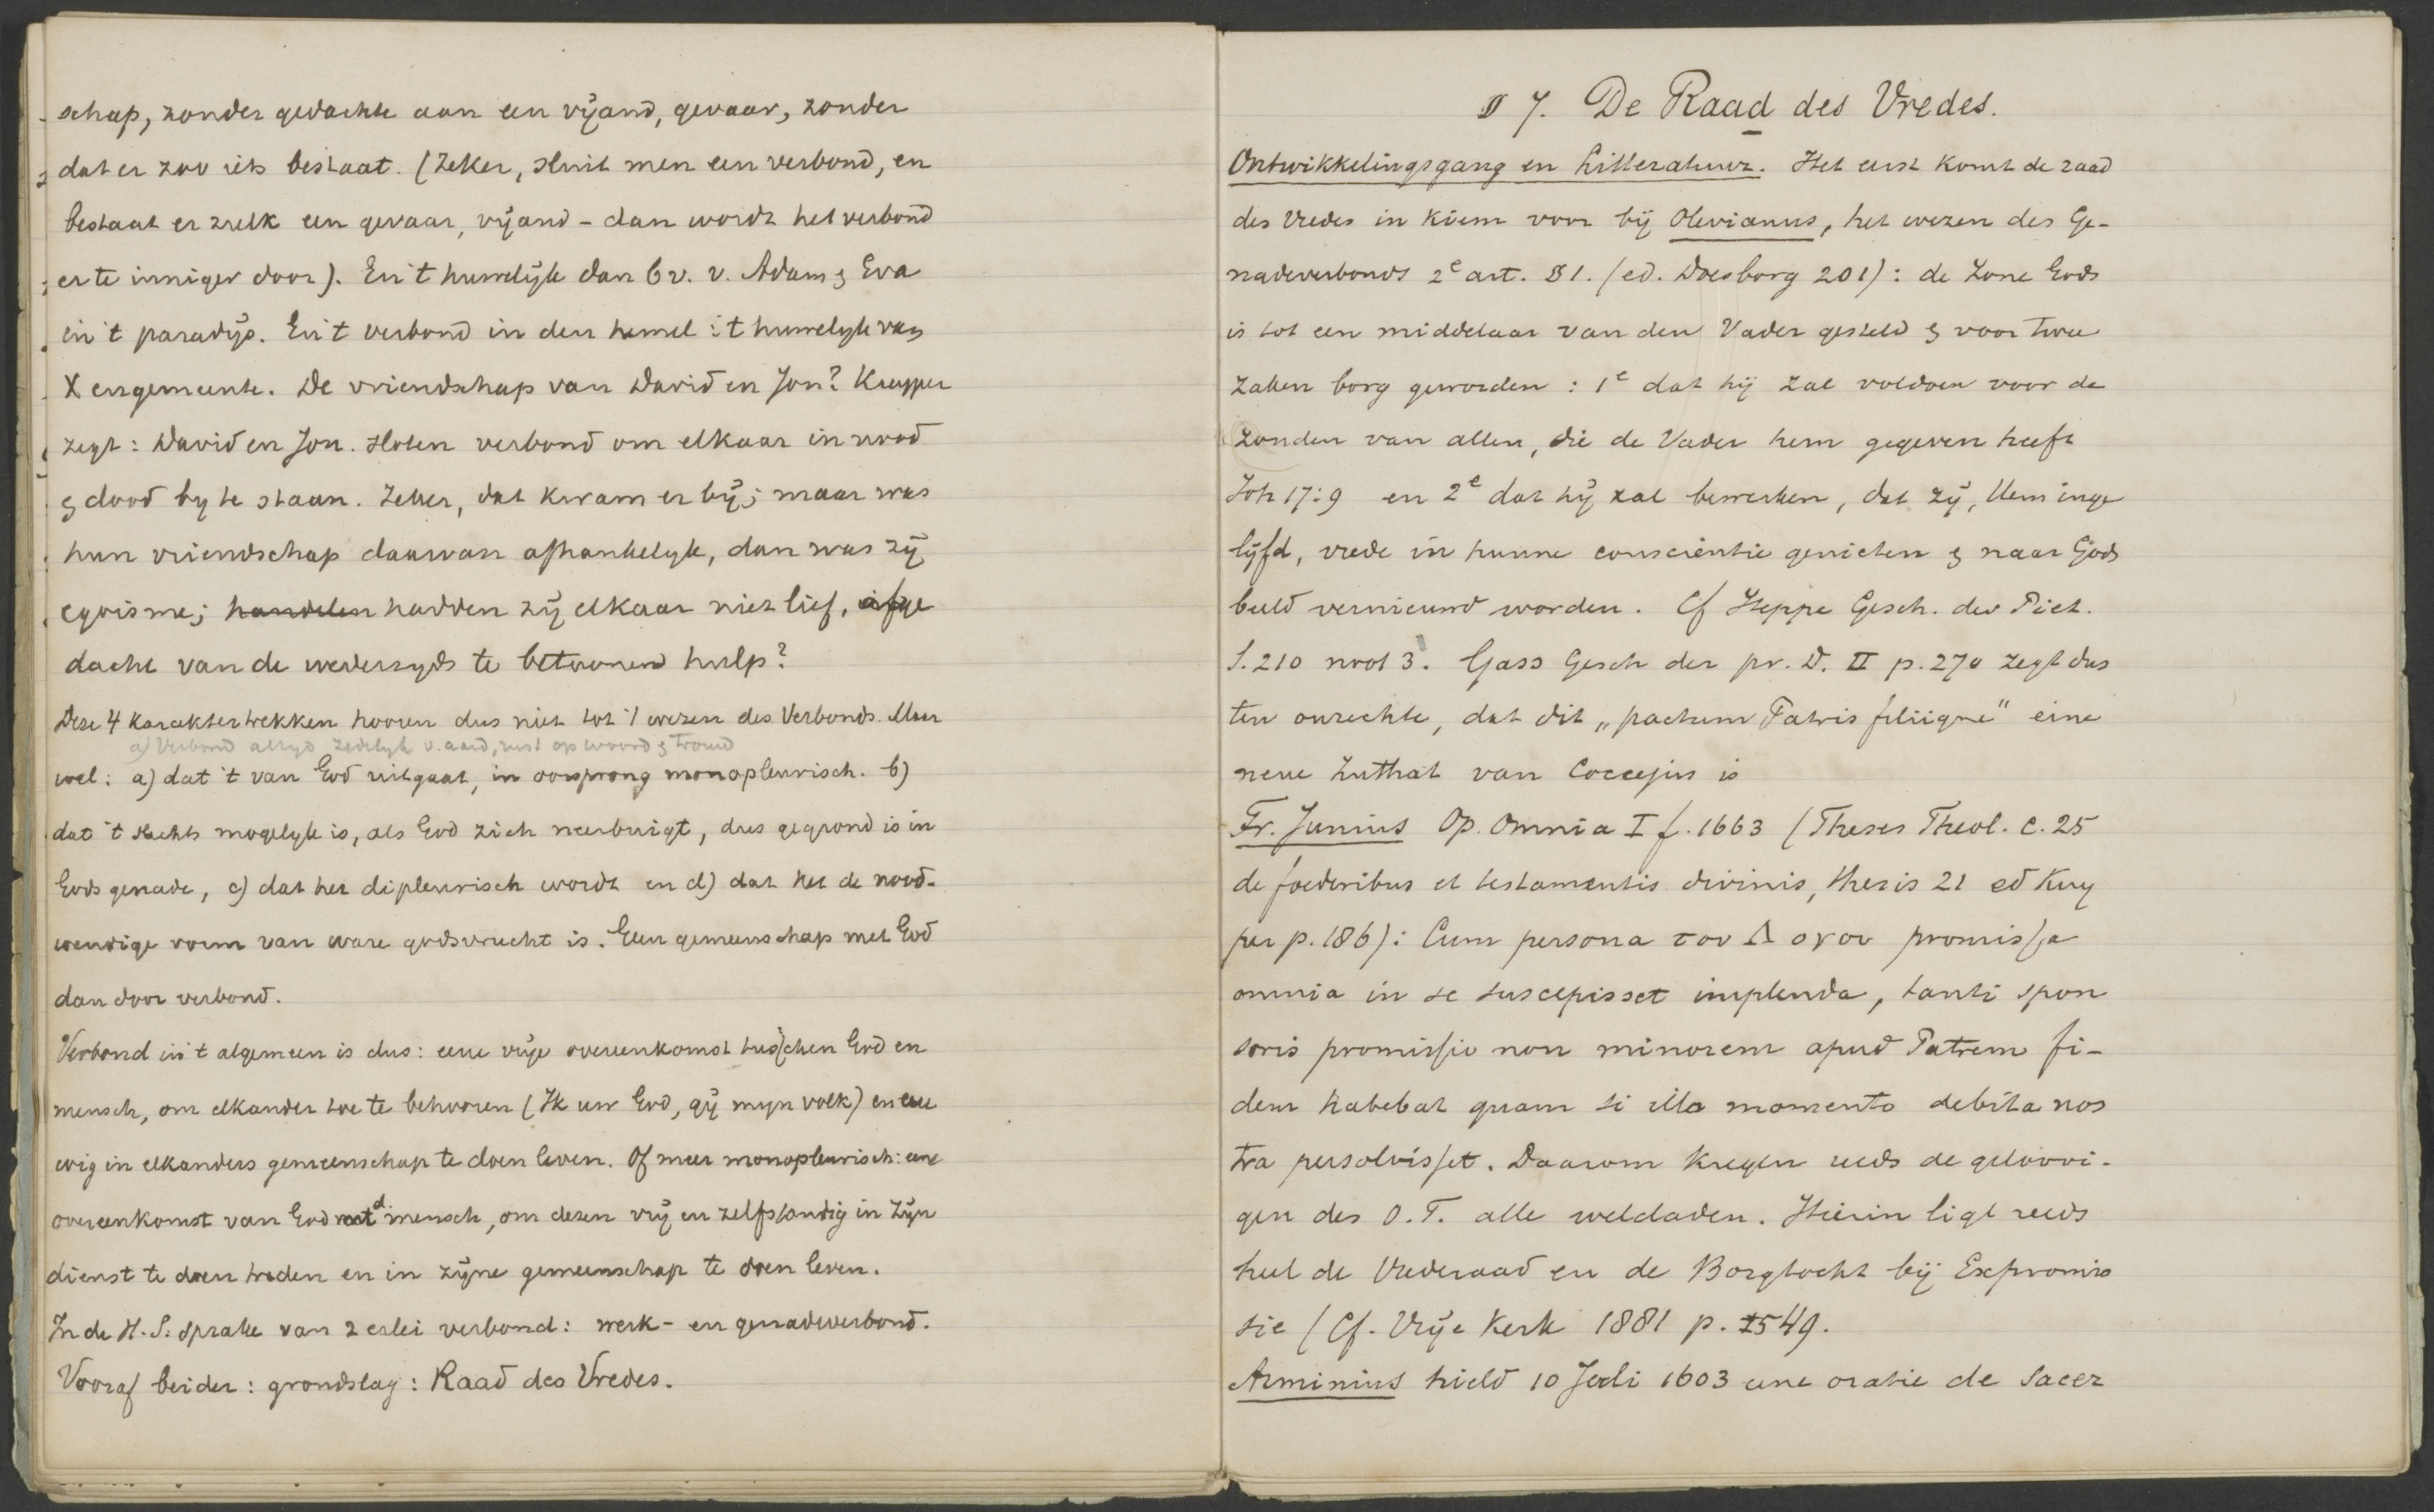 schap, zonder gedachte aan een vijand, gevaar, zonder
dat er zoo iets bestaat. (Zeker, sluit men een verbond, en
bestaat er zulk een gevaar, vijand – dan wordt het verbond
er te inniger door). En 't huwelijk dan bv. v. Adam & Eva
in 't paradijs. En 't verbond in den hemel: 't huwelyk van
X en gemeente. De vriendschap van David en Jon? Kuyper
zegt: David en Jon. sloten verbond om elkaar in nood
& dood by te staan. Zeker, dat kwam er bij; maar was
hun vriendschap daarvan afhankelyk, dan was zij
egoisme; handelen hadden zij elkaar niet lief, afge
dacht van de wederzyds te betoonen hulp?
Deze 4 karaktertrekken hooren dus niet tot 't wezen des Verbonds. Maar
a) Verbond altyd zedelyk v. aard, rust op woord & trouw
wel: a) dat 't van God uitgaat, in oorsprong monopleurisch. b)
dat 't slechts mogelyk is, als God zich neerbuigt, dus gegrond is in
Gods genade, c) dat het dipleurisch wordt en d) dat het de nood-
wendige vorm van ware godsvrucht is. Geen gemeenschap met God
dan door verbond.
Verbond in 't algemeen is dus: eene vrije overeenkomst tusschen God en
mensch, om elkander toe te behooren (Ik uw God, gij mijn volk) en eeu
wig in elkanders gemeenschap te doen leven. Of meer monopleurisch: eene
overeenkomst van God met d mensch, om dezen vrij en zelfstandig in Zijn
dienst te doen treden en in zijne gemeenschap te doen leven.
In de H. S. sprake van 2 erlei verbond: werk- en genadeverbond.
Vooraf beider: grondslag: Raad des Vredes.
§ 7. De Raad des Vredes.
Ontwikkelingsgang en Litteratuur. Het eerst komt de raad
des Vredes in kiem voor bij Olevianus, het wezen des Ge-
nadeverbonds 2e art. § 1. (ed. Doesborg 201): de Zone Gods
is tot een middelaar van den Vader gesteld & voor twee
zaken borg geworden: 1e dat hij zal voldoen voor de
zonden van allen, die de Vader hem gegeven heeft
Joh 17:9 en 2e dat hij zal bewerken, dat zij, Hem inge
lijfd, vrede in hunne conscientie genieten & naar Gods
beeld vernieuwd worden. Cf Heppe Gesch. des Piet.
S. 210 noot 3. Gass Gesch der pr. D. II p. 270 zegt dus
ten onrechte, dat dit „pactum Patris filiique" eine
neue Zuthat van Coccejus is
Fr. Junius Op. Omnia I f. 1663 (Theses Theol. c. 25
de foederibus et testamentis divinis, thesis 21 ed Kuy
per p. 186): Cum persona του Λογου promissa
omnia in se suscepisset implenda, tanti spon
soris promissio non minorem apud Patrem fi-
dem habebat quam si illo momento debita nos
tra persolvisset. Daarom kregen reeds de geloovi-
gen des O. T. alle weldaden. Hierin ligt reeds
heel de Vrederaad en de Borgtocht bij Expromis
sie (Cf. Vrije Kerk 1881 p. 549.
Arminius hield 10 Juli 1603 eene oratie de Sacer